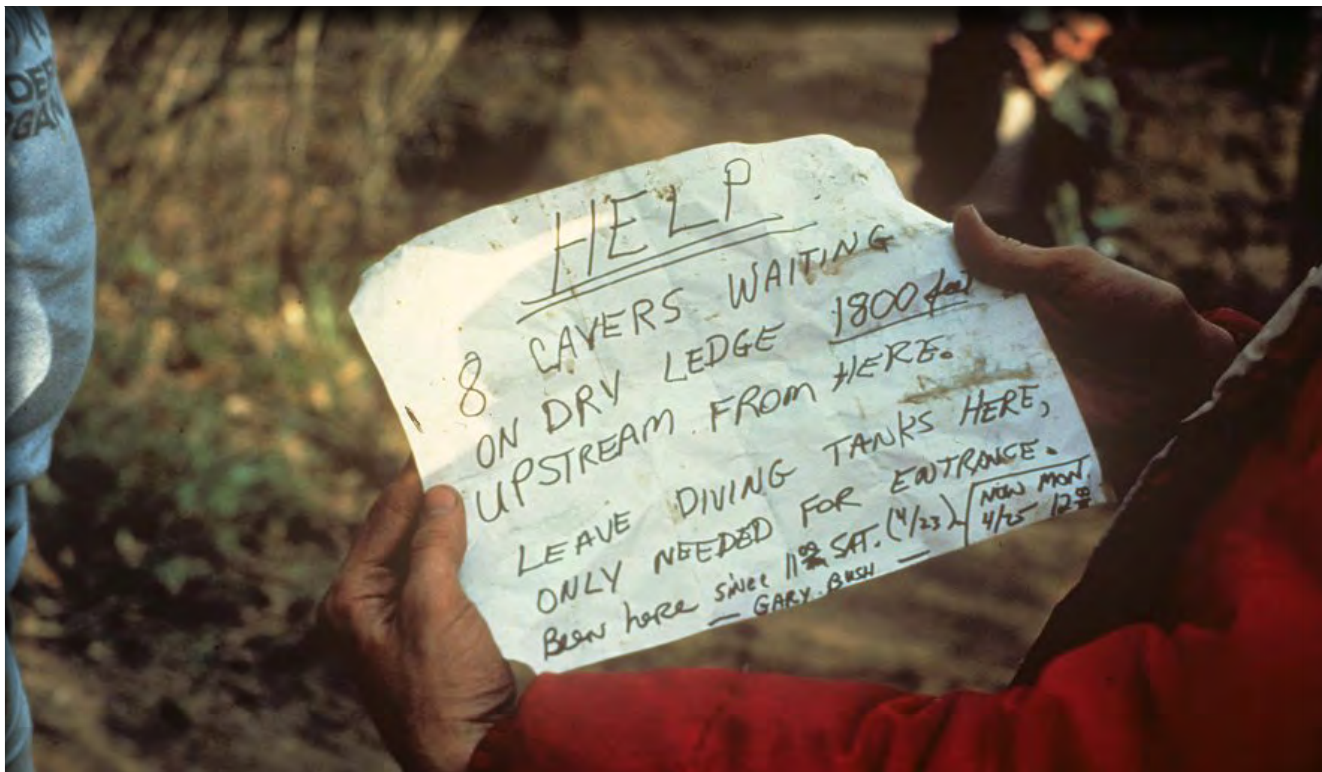 HELP
8 CAVERS WAITING
ON DRY LEDGE 1800 feet
UPSTREAM FROM HERE.
LEAVE DIVING TANKS HERE,
ONLY NEEDED FOR ENTRANCE.
Been here since 11:00 SAT. (4/23) NOW MON.
4/25 12:00
— GARY BUSH —